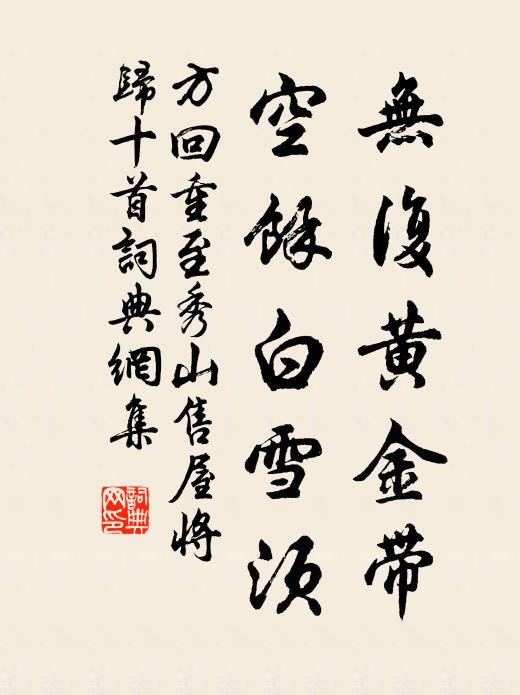 無復黄金帶
空餘白雪須
方回重至秀山售屋將
歸十首詞典網集
詞典
网印